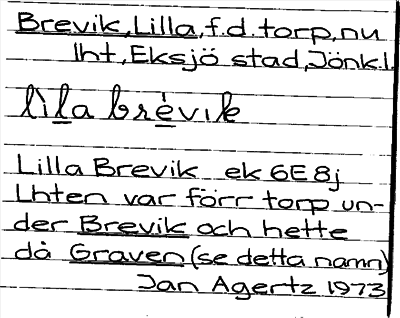 Brevik, Lilla, f.d. torp, nu
lht, Eksjö stad, Jönk.l.
lìla brèvik
Lilla Brevik ek 6E8j
Lhten var förr torp un-
der Brevik och hette
då Graven (se detta namn)
Jan Agertz 1973